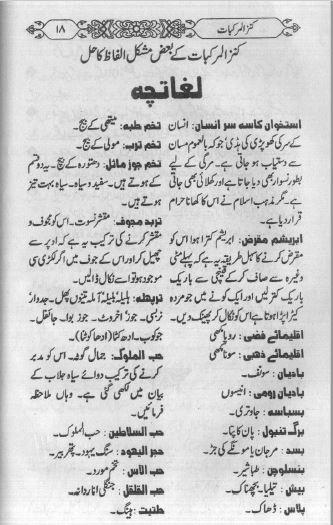 کنز المرکبات
۱۸
کنز المرکبات کے بعض مشکل الفاظ کا حل
لغاتچہ
استخوان کاسہ سر انسان: انسان
کے سر کی کھوپڑی کی ہڈی جو کہ بالعموم مسان
سے دستیاب ہو جاتی ہے۔ مرگی کے لیے
بطور نسوار بھی دیا جاتا ہے اور کھلائی بھی جاتی
ہے۔ مگر مذہب اسلام نے اس کا کھانا حرام
قرار دیا ہے۔
ابریشم مقرض: ابریشم کترا ہوا اس کو
مقرض کرنے کا سہل طریقہ یہ ہے کہ پہلے مٹی
وغیرہ سے صاف کر کے قینچی سے باریک
باریک کتر لیں اور ایک کونے میں جو مردہ
کیڑا پڑا ہوتا ہے اس کو نکال کر پھینک دیں۔
اقلیمائے فضی: روپا مکھی
اقلیمائے ذھبی: سونا مکھی
بادیان: سونف۔
بادیان رومی: انیسوں
بسباسہ: جاوتری۔
برگ تنبول: پان کا پتا۔
بسد: مرجان یا مونگے کی جڑ۔
بنسلوچن: طباشیر۔
بیش: تیلیا۔ بچھناک۔
پلاس: ڈھاک۔
تخم حلبہ: میتھی کے بیج۔
تخم ترب: مولی کے بیج۔
تخم جوز ماثل: دھتورہ کے بیج۔ یہ دو قسم
کے ہوتے ہیں۔ سفید و سیاہ۔ سیاہ بہت تیز
ہوتے ہیں۔
تربد مجوف: مقشر نسوت۔ اس کو مجوف و
مقشر کرنے کی ترکیب یہ ہے کہ اوپر سے
چھیل کر اور اس کے جوف میں اگر لکڑی سی
موجود ہو تو اسے نکال ڈالیں۔
تریھلہ: ہلیلہ، بلیلہ، آملہ تینوں پھل۔ جدوار:
نربسی۔ جوز: اخروٹ۔ جوز بوا۔ جائفل۔
جوکوب۔ ادھ کٹا (ادھا کوٹنا)۔
حب الملوک: جمال گوٹہ۔ اس کو مدبر
کرنے کی ترکیب دوائے سیاہ جلاب کے
بیان میں لکھی گئی ہے۔ وہاں ملاحظہ
فرمائیں۔
حب السلاطین: حب الملوک۔
حجر الیھود: سنگ یہود۔ پتھر بیر۔
حب الآس: تخم مورد۔
حب القلقل: جنگلی انار دانہ۔
حلتیت: ہینگ۔